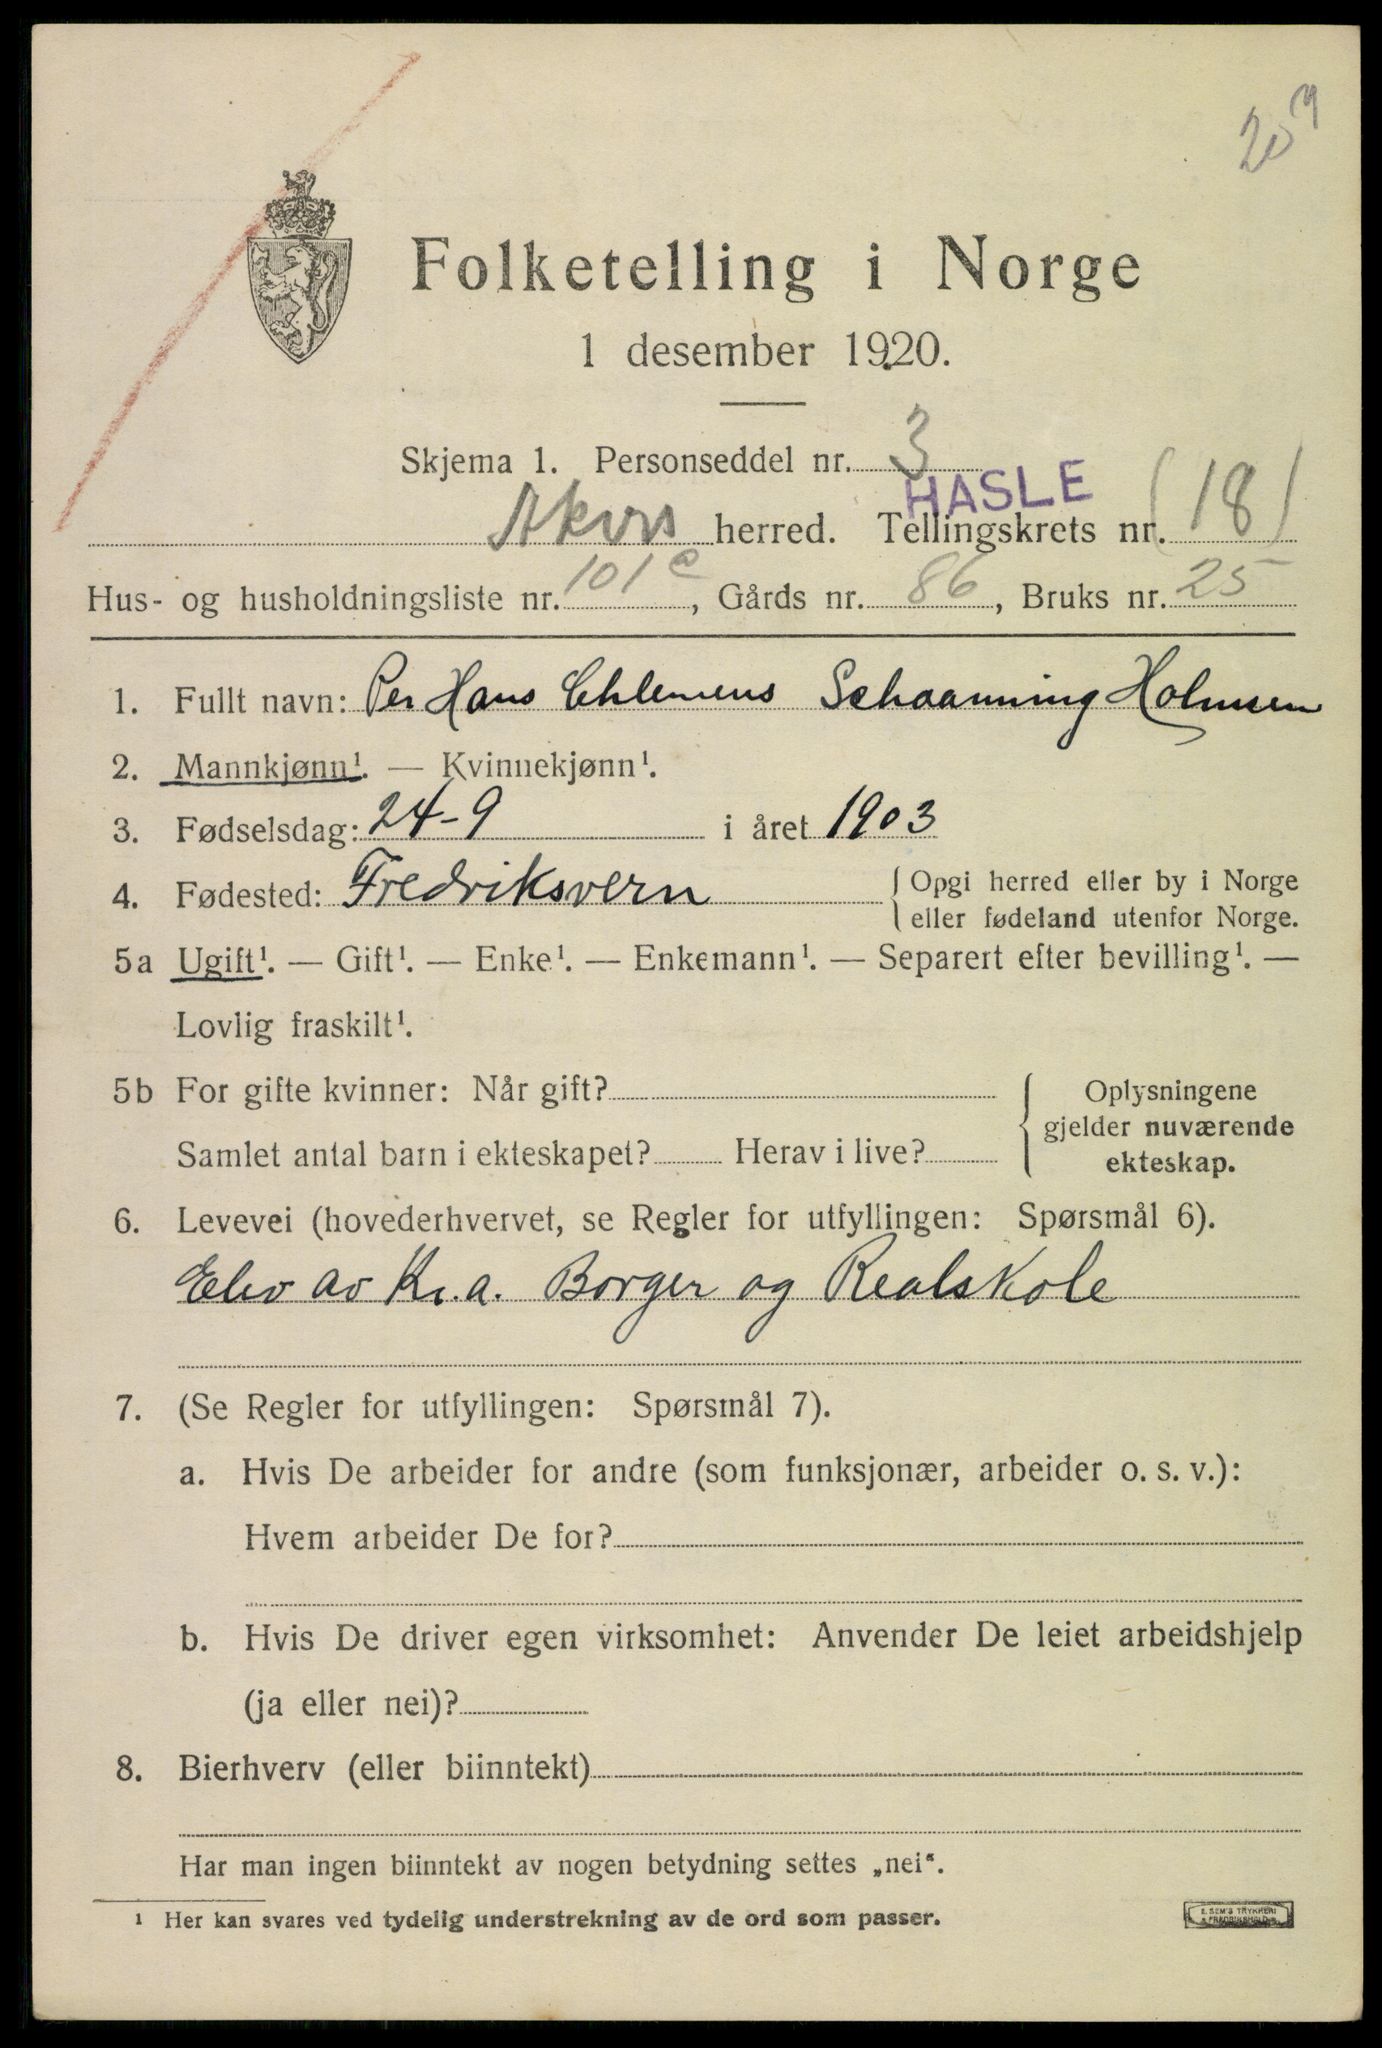 20
Folketelling i Norge
1 desember 1920.
Skjema 1. Personseddel nr. 3
HASLE
Akers herred. Tellingskrets nr. (18)
Hus- og husholdningsliste nr. 101 c, Gårds nr. 86, Bruks nr. 25
1. Fullt navn: Per Hans Chlemens Schaanning Holmsen
2. Mannkjønn¹. — Kvinnekjønn¹.
3. Fødselsdag: 24-9 i året 1903
4. Fødested: Fredriksvern { Opgi herred eller by i Norge
eller fødeland utenfor Norge.
5a Ugift¹. — Gift¹. — Enke¹. — Enkemann¹. — Separert efter bevilling¹. —
Lovlig fraskilt¹.
5b For gifte kvinner: Når gift? { Oplysningene
gjelder nuværende
Samlet antal barn i ekteskapet? Herav i live? ekteskap.
6. Levevei (hovederhvervet, se Regler for utfyllingen: Spørsmål 6).
Elev av Kr.a. Borger og Realskole
7. (Se Regler for utfyllingen: Spørsmål 7).
a. Hvis De arbeider for andre (som funksjonær, arbeider o. s. v.):
Hvem arbeider De for?
b. Hvis De driver egen virksomhet: Anvender De leiet arbeidshjelp
(ja eller nei)?
8. Bierhverv (eller biinntekt)
Har man ingen biinntekt av nogen betydning settes „nei“.
¹ Her kan svares ved tydelig understrekning av de ord som passer.
E. SEM'S TRYKKERI
FREDRIKSHALD